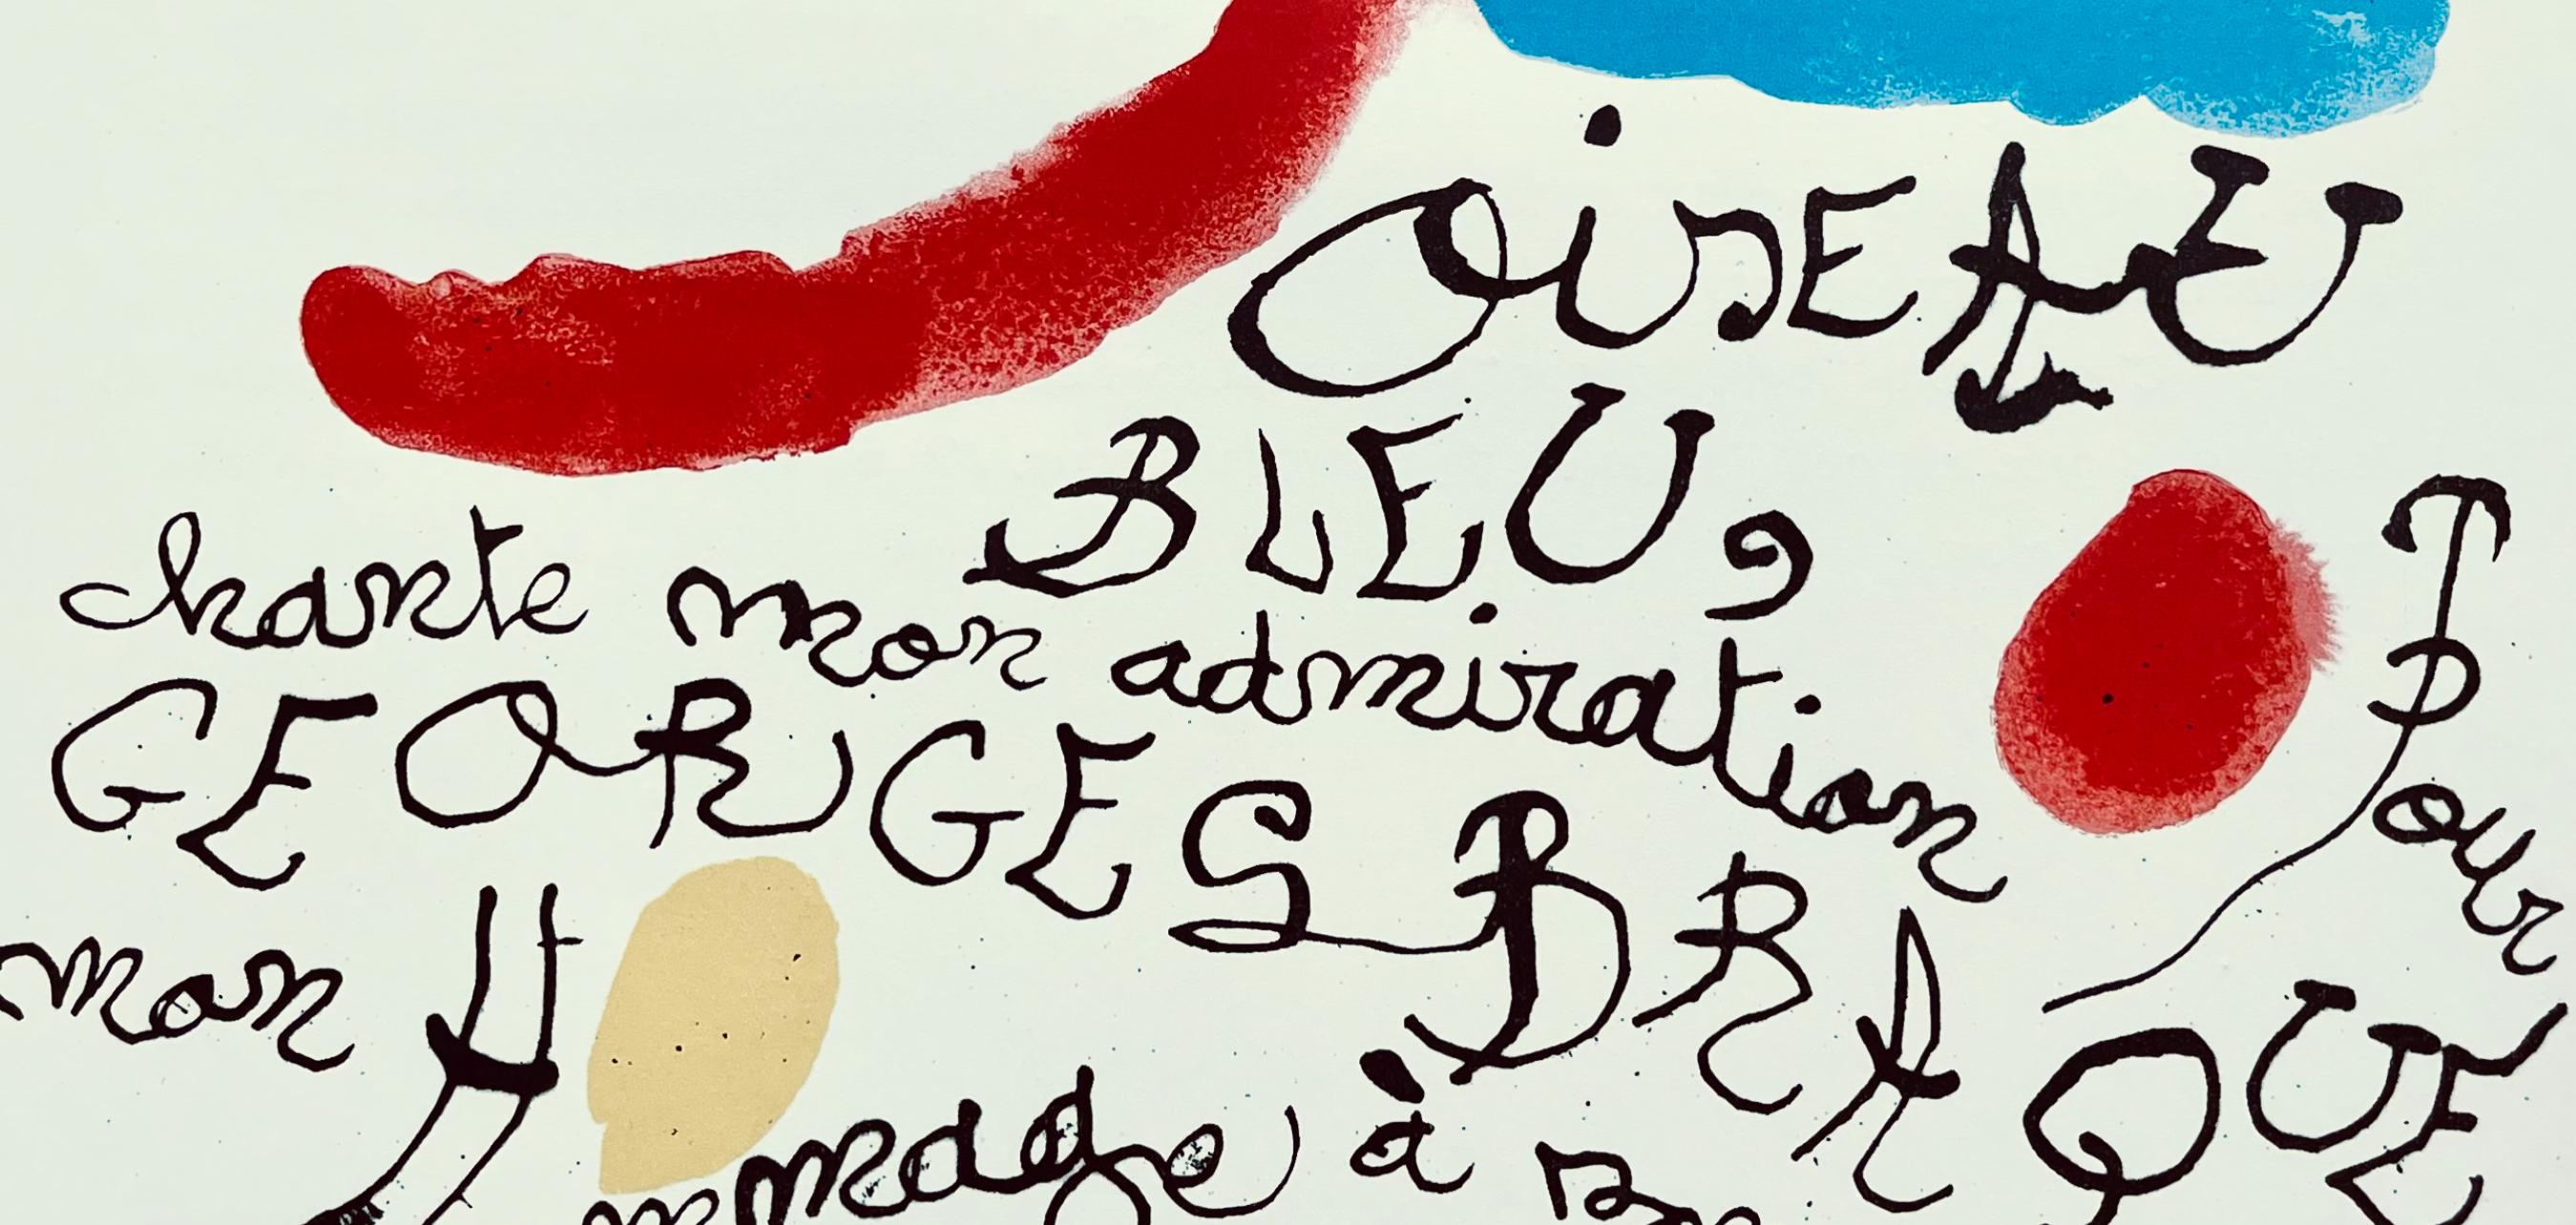 OiSEAU
BLEU,
chante mon admiration Pour
GEORGES BRAQUE
mon H
mmage à